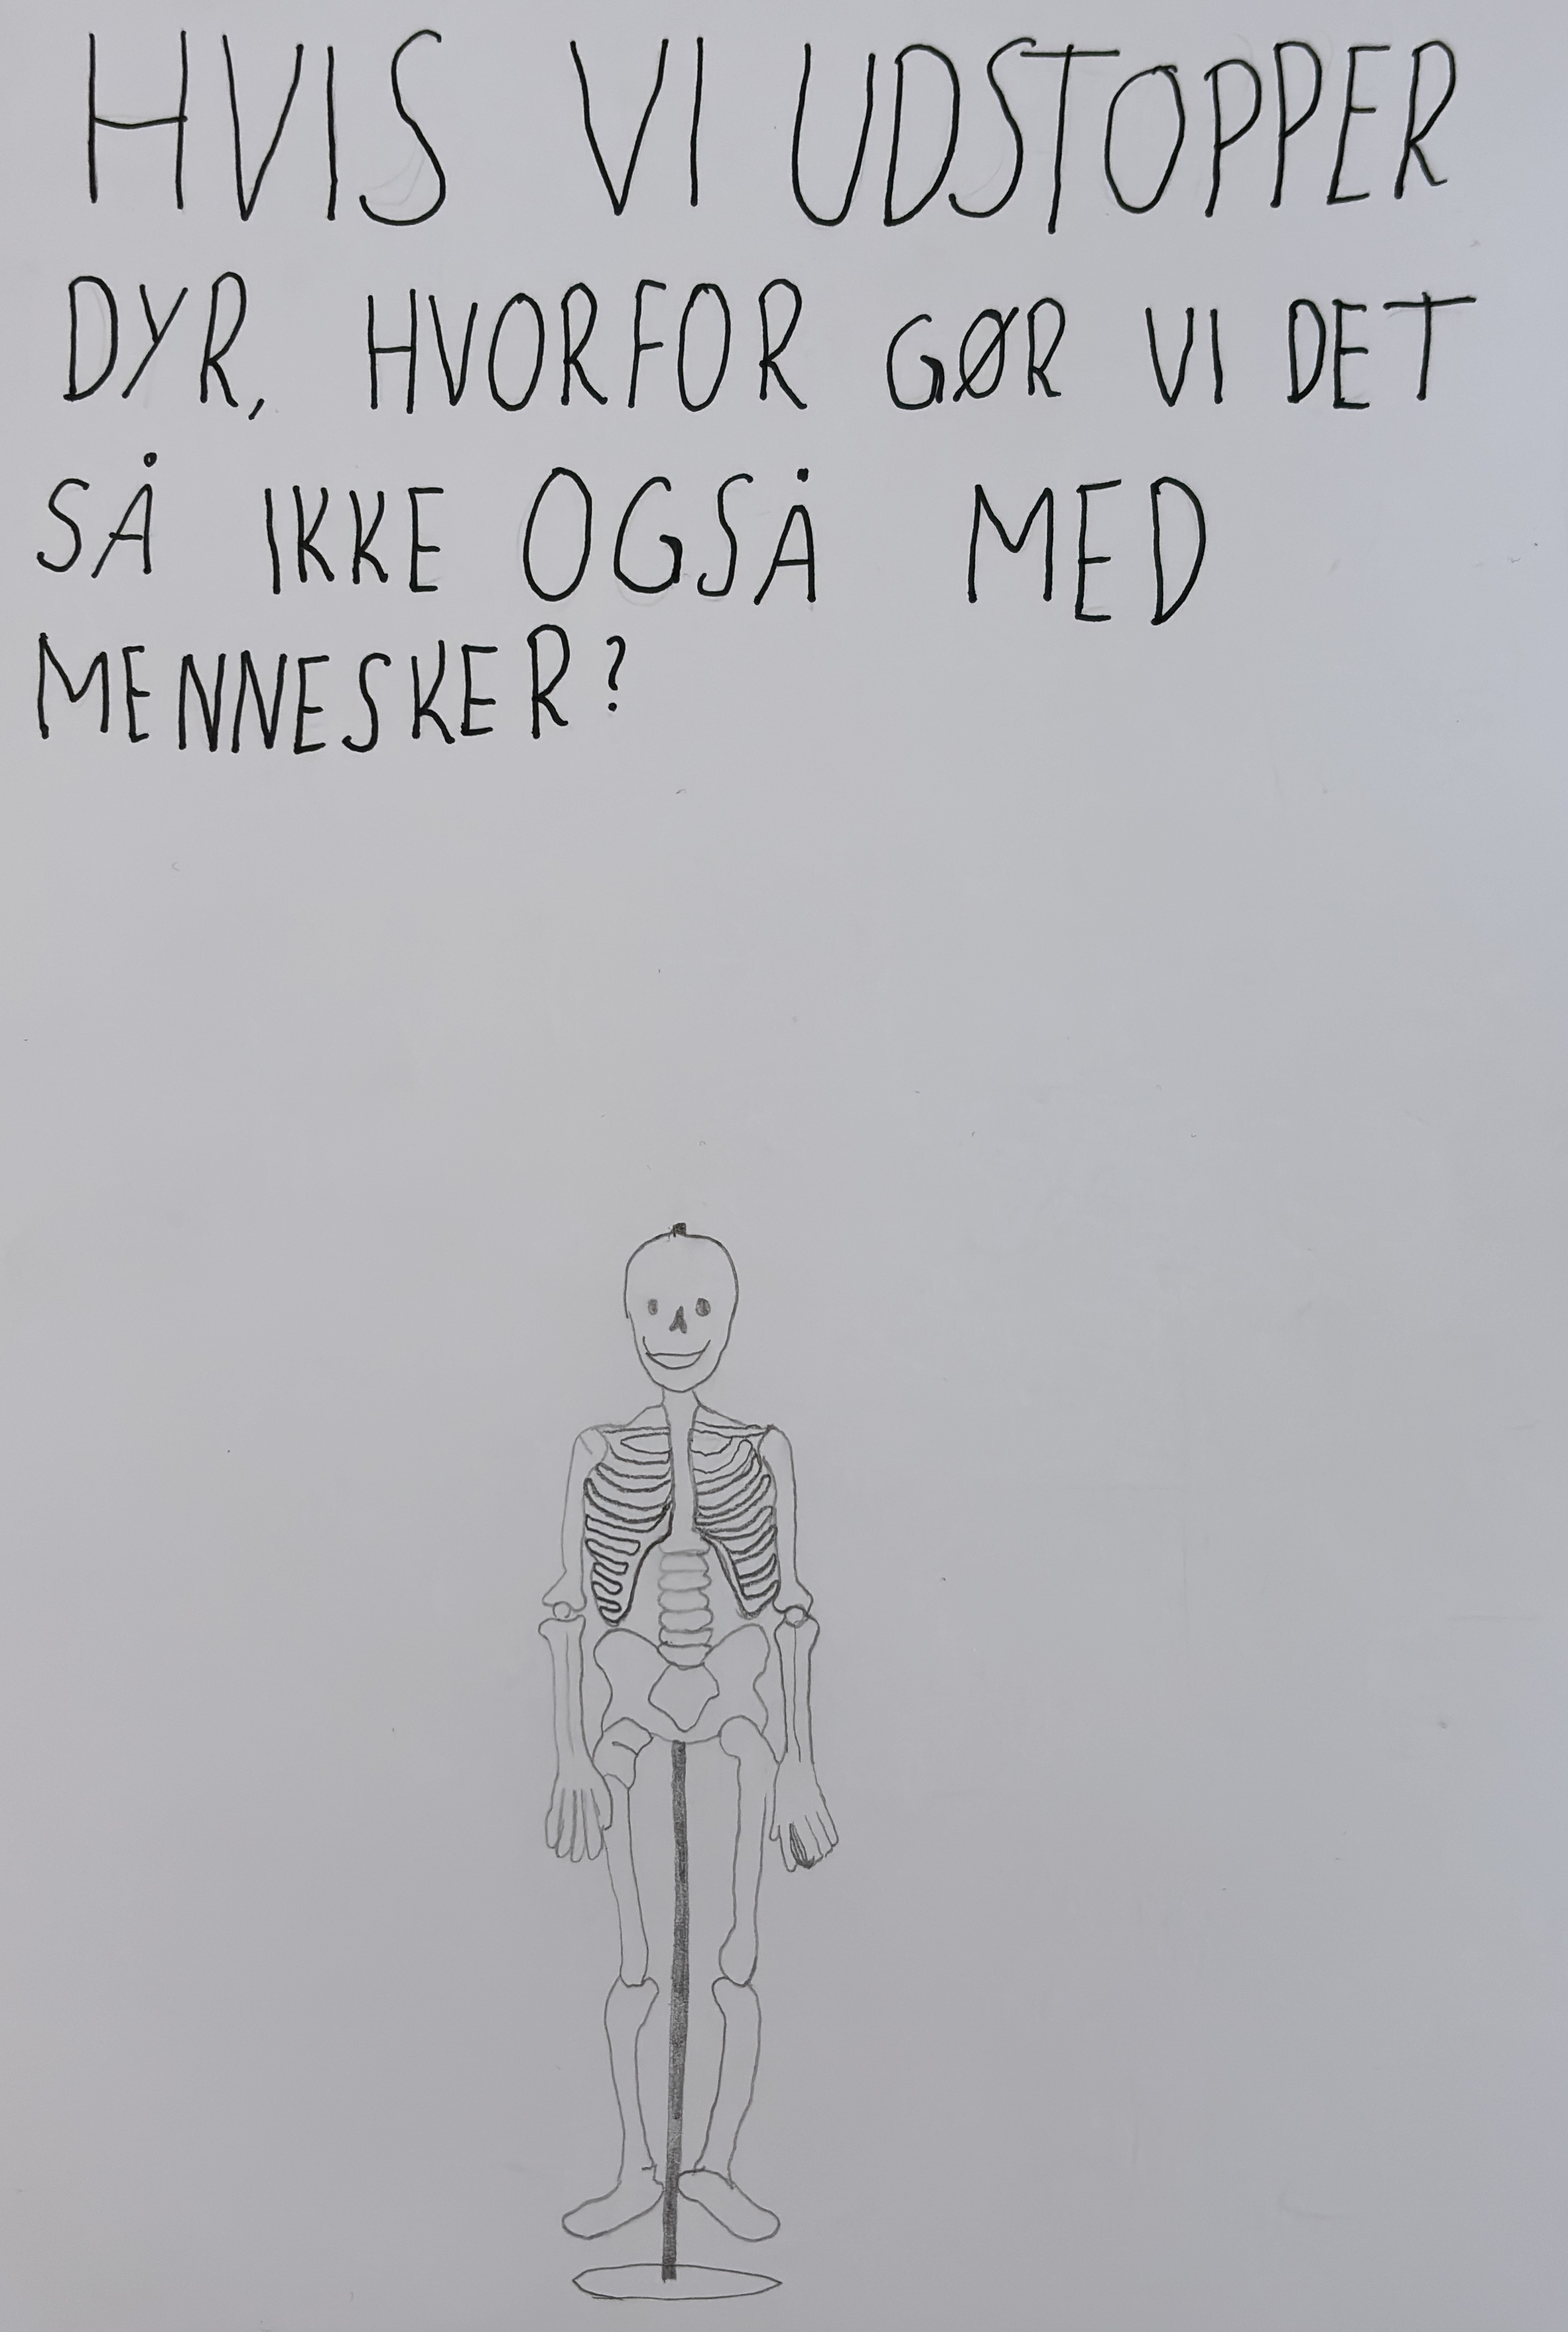 HVIS VI UDSTOPPER
DYR, HVORFOR GØR VI DET
SÅ IKKE OGSÅ MED
MENNESKER?